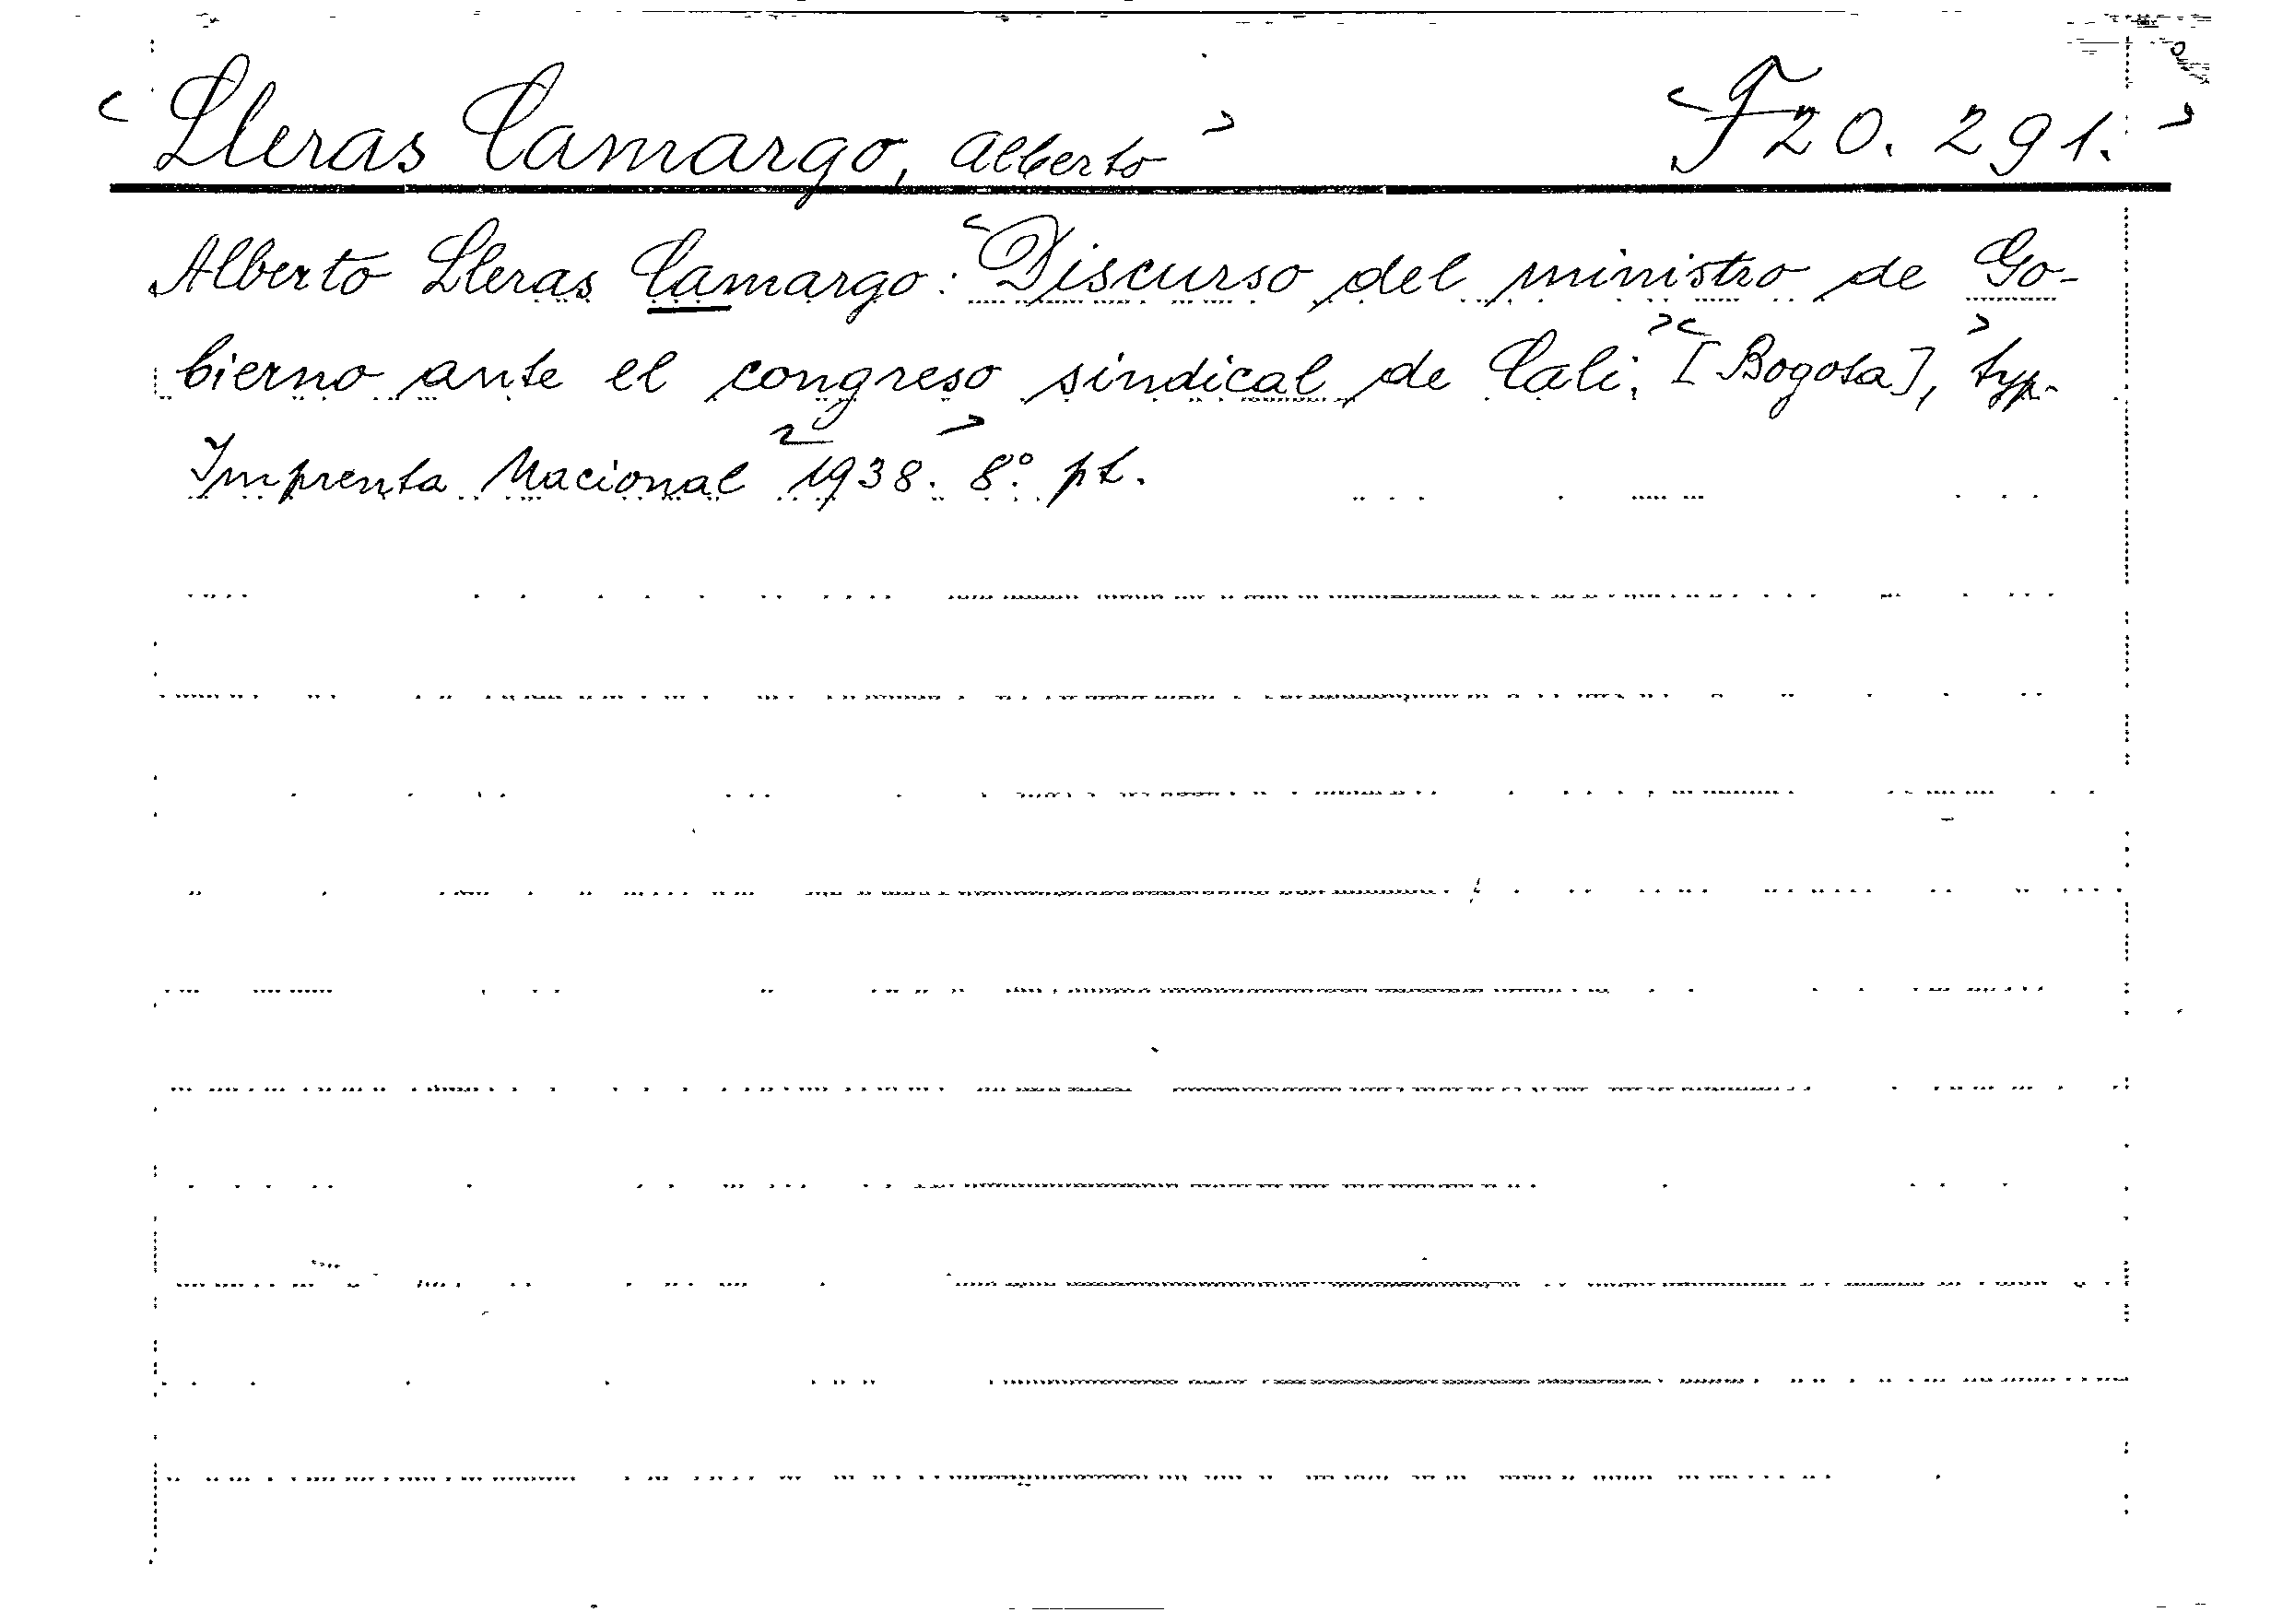 Lleras Camargo, Alberto F20.291.
Alberto Lleras Camargo: Discurso del ministro de Go-
bierno ante el congreso sindical de Cali. [Bogota], typ.
Imprenta Nacional 1938. 8° pt.